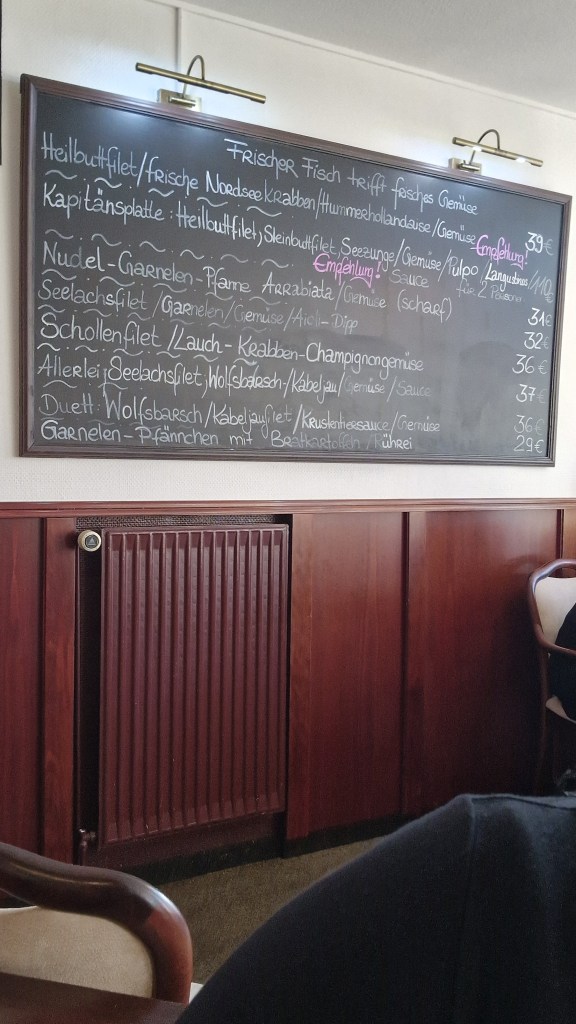 Frischer Fisch trifft frisches Gemüse
Heilbuttfilet/frische Nordseekrabben/Hummerhollandaise/Gemüse Empfehlung! 39€
Kapitänsplatte: Heilbuttfilet, Steinbuttfilet Seezunge/Gemüse/Pulpo/Langustinos/110€
Empfehlung! Sauce für 2 Personen
Nudel-Garnelen-Pfanne Arrabiata/Gemüse (scharf) 31€
Seelachsfilet/Garnelen/Gemüse/Aioli-Dipp 32€
Schollenfilet/Lauch-Krabben-Champignongemüse 36€
Allerlei: Seelachsfilet, Wolfsbarsch-/Kabeljau/Gemüse/Sauce 37€
Duett: Wolfsbarsch/Kabeljaufilet/Krustentiersauce/Gemüse 36€
Garnelen-Pfännchen mit Bratkartoffeln/Rührei 29€